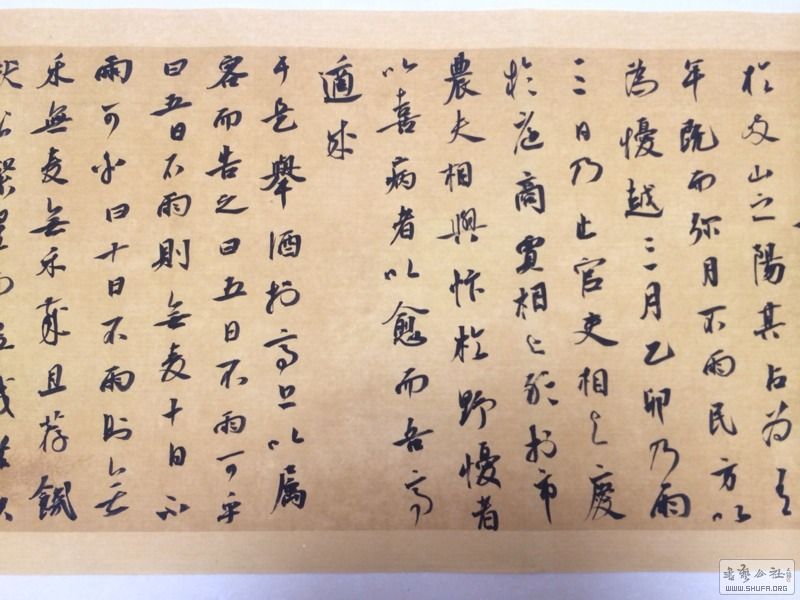 於岐山之陽其占为有
年既而弥月不雨民方以
為懮越三月乙卯乃雨
三日乃止官吏相与慶
於庭商賈相与歌於市
農夫相與忭於野懮者
以喜病者以愈而吾亭
適成
于是舉酒於亭上以属
客而告之曰五日不雨可乎
曰五日不雨則無麦十日不
雨可乎曰十日不雨則無
禾無麦無禾歲且荐饑
WWW.SHUFA.ORG